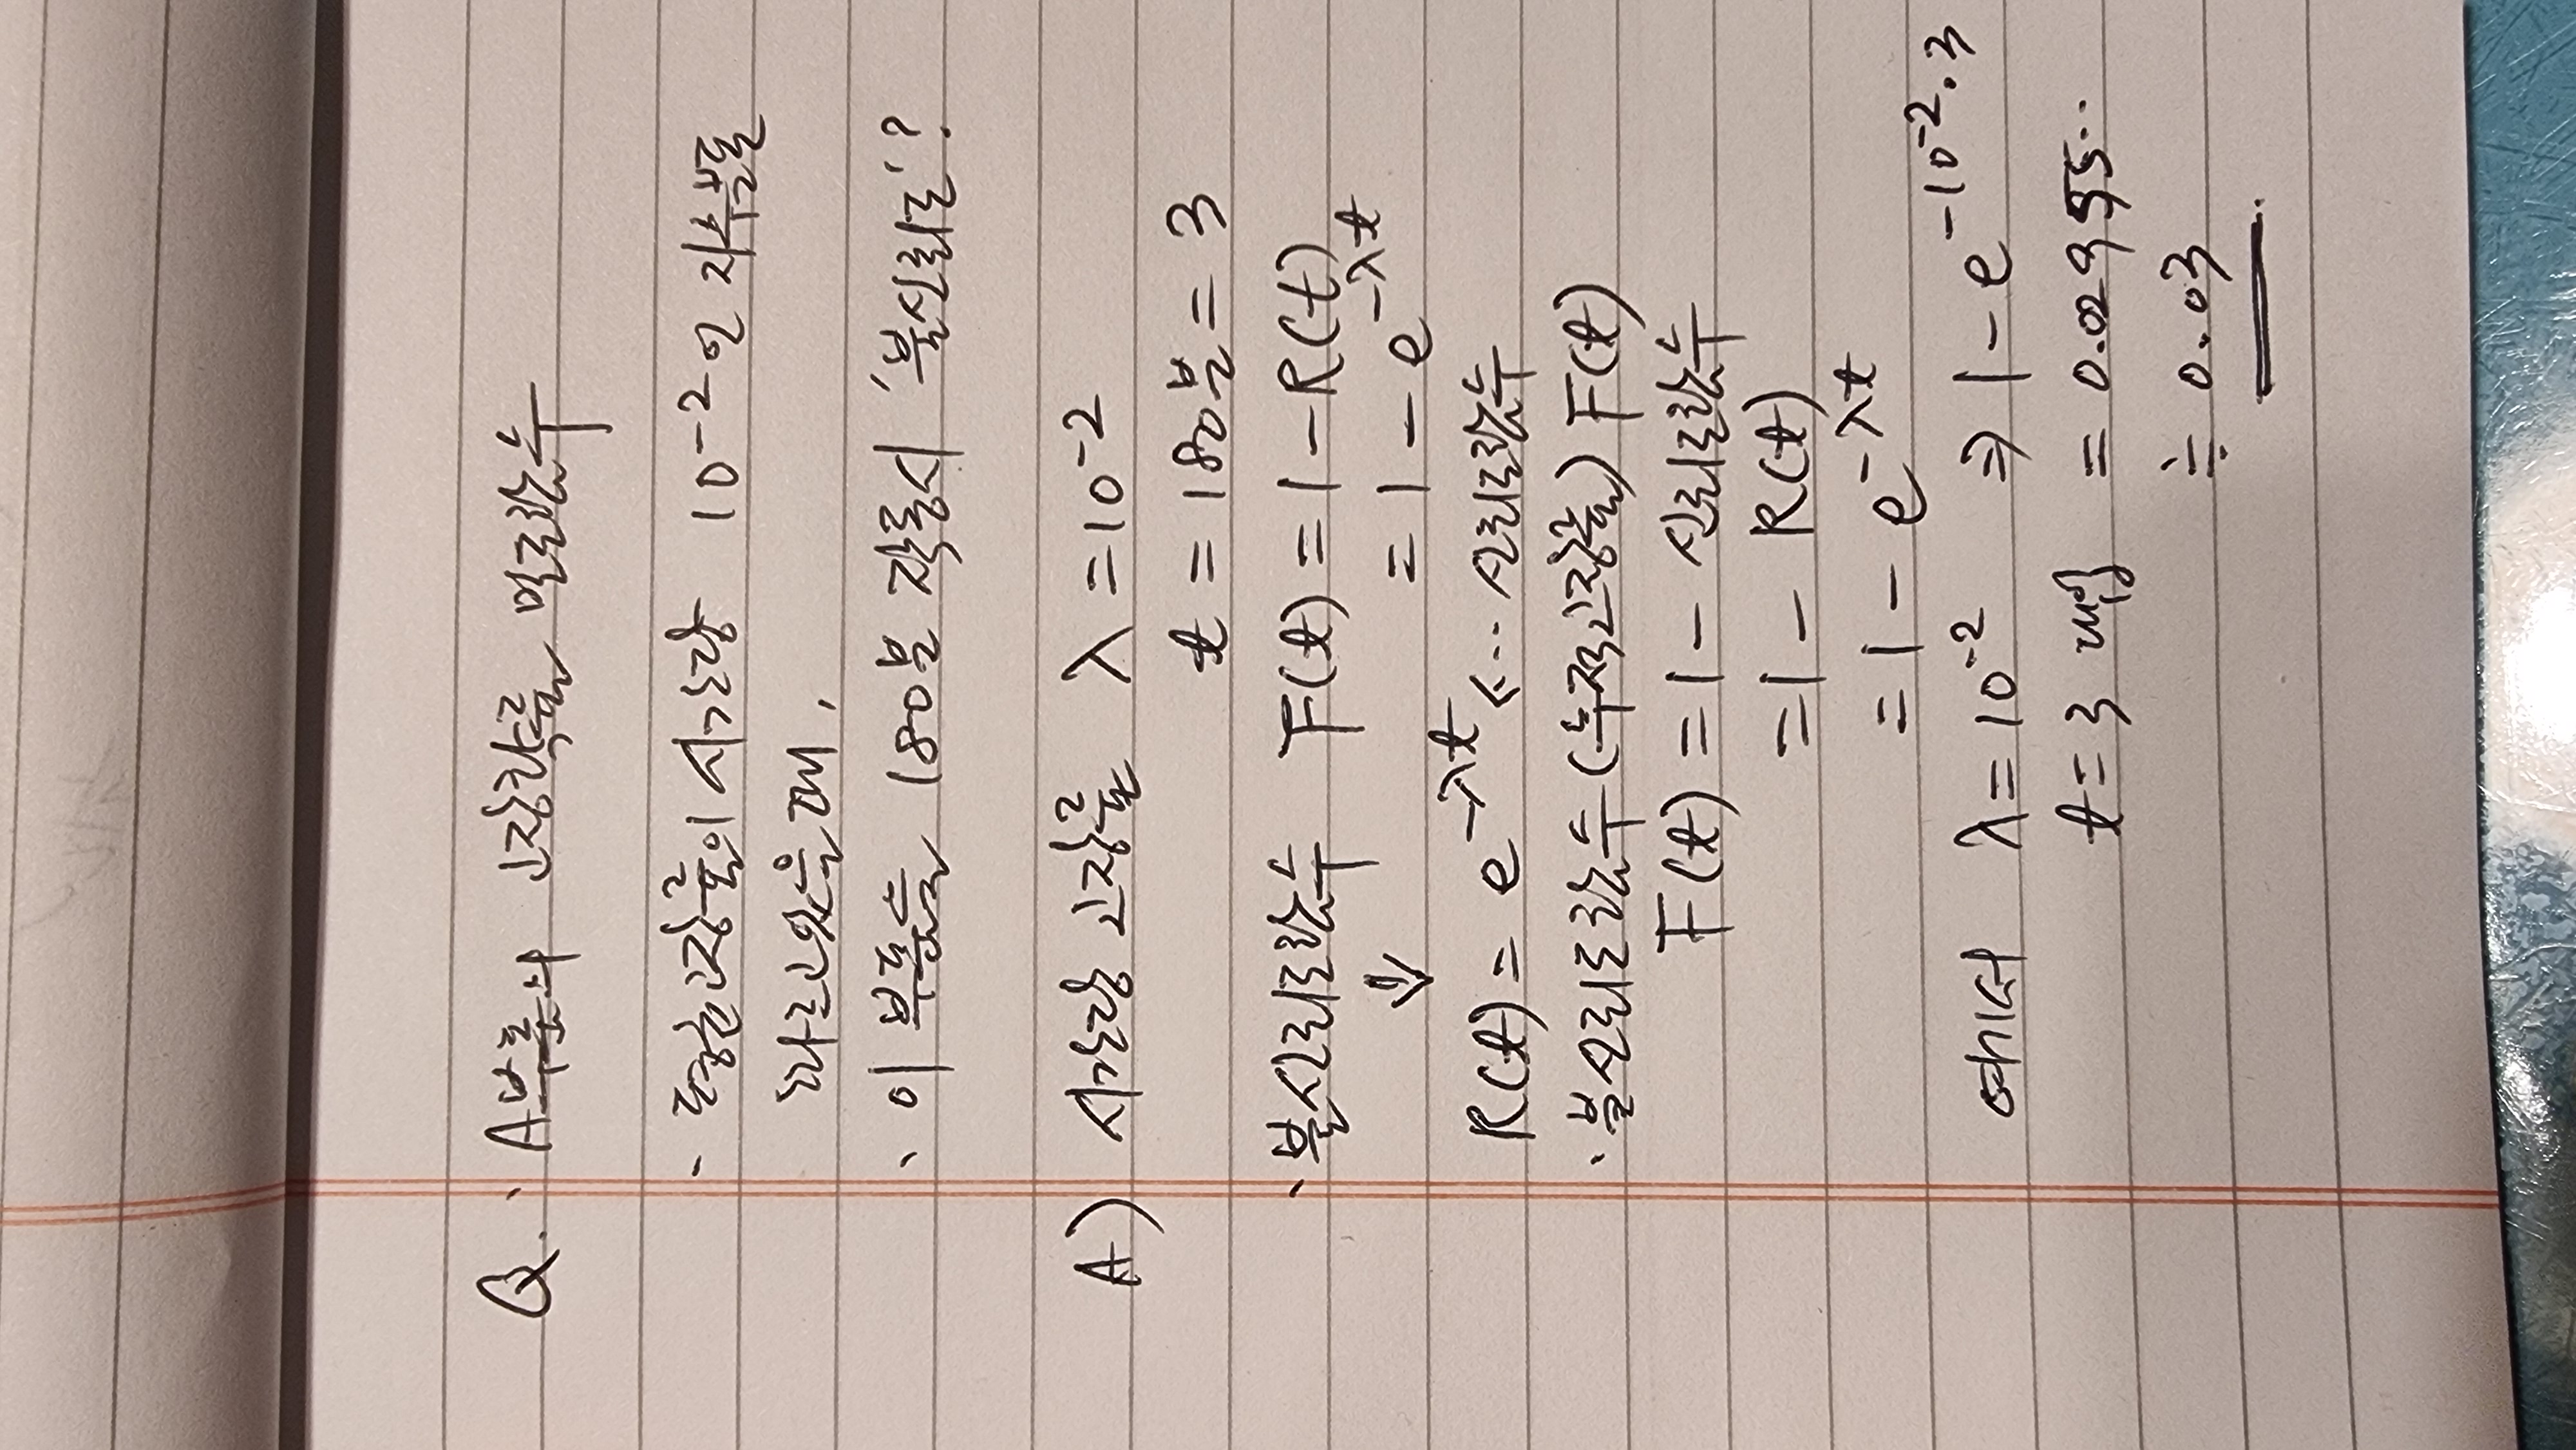 Q. · A부품의 고장확률 밀도함수
- 동일고장률의 시간당 10⁻²인 지수분포
따르고 있을 때,
· 이 부품을 180분 작동시 '불신뢰도'?
A) 시간당 고장률 λ = 10⁻²
t = 180분 = 3
· 불신뢰도함수 F(t) = 1 - R(t)
⇓ = 1 - e^-λt
R(t) = e^-λt <--- 신뢰도함수
· 불신뢰도함수(누적고장률) F(t)
F(t) = 1 - 신뢰도함수
= 1 - R(t)
= 1 - e^-λt
여기서 λ = 10⁻² ⇒ 1 - e^-10⁻²·3
t = 3 대입 = 0.02955..
≒ 0.03